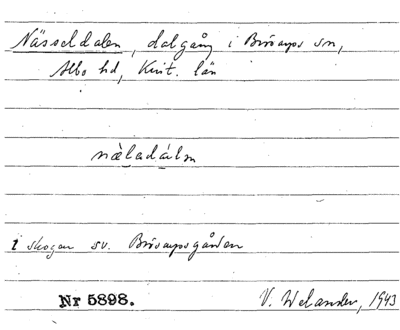 Nässeldalen, dalgång i Brösarps sn,
Albo hd, Krist. län
näladáln
i skogen sv. Brösarpsgården
Nr 5898.
V. Welander, 1943